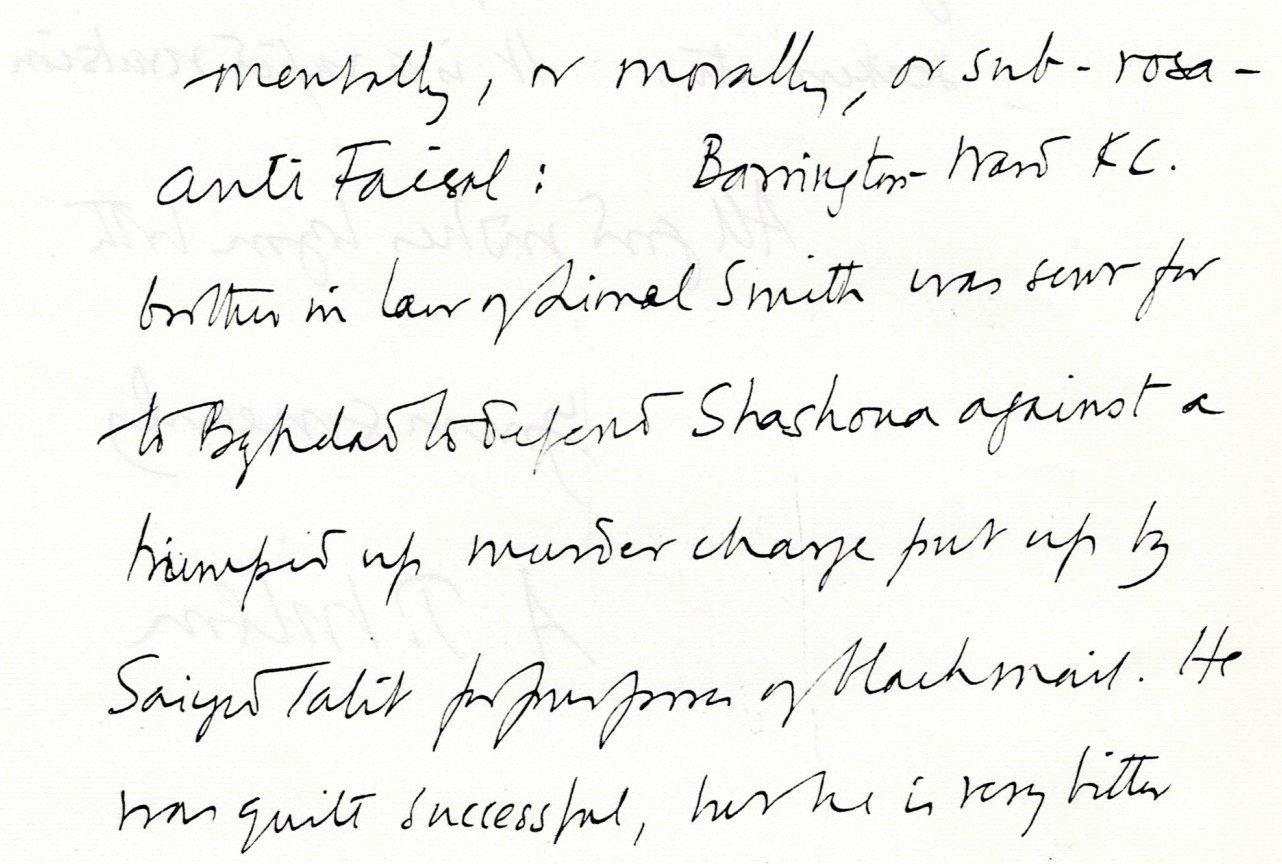 mentally, or morally, or sub-rosa-
anti Faisal: Barrington-Ward KC.
brother in law of Lionel Smith was sent for
to Baghdad to defend Shashoua against a
trumped up murder charge put up by
Saiyid Talib for purposes of blackmail. He
was quite successful, but he is very bitter